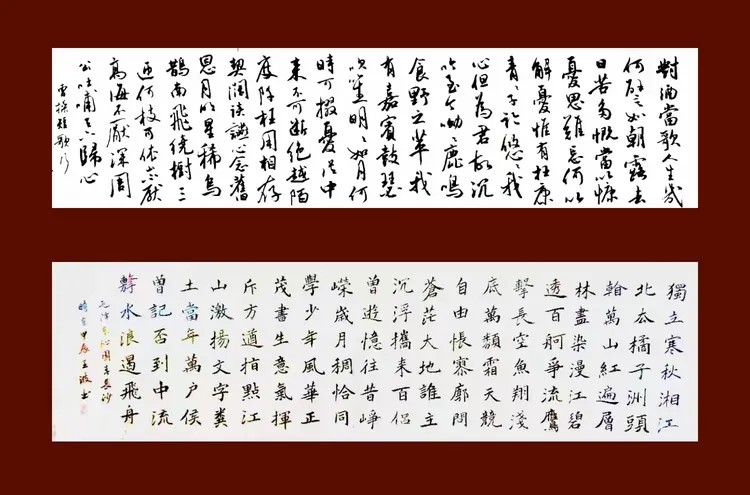 對酒當歌人生幾
何譬如朝露去
日苦多慨當以慷
憂思難忘何以
解憂惟有杜康
青〻子衿悠〻我
心但為君故沉
吟至今呦〻鹿鳴
食野之苹我
有嘉賓鼓瑟
吹笙明〻如月何
時可掇憂從中
來不可斷絕越陌
度阡枉用相存
契闊談讌心念舊
恩月明星稀烏
鵲南飛繞樹三
匝何枝可依山不厭
高海不厭深周
公吐哺天下歸心
曹操短歌行
獨立寒秋湘江
北去橘子洲頭
看萬山紅遍層
林盡染漫江碧
透百舸爭流鷹
擊長空魚翔淺
底萬類霜天競
自由悵寥廓問
蒼茫大地誰主
沉浮攜來百侶
曾遊憶往昔崢
嶸歲月稠恰同
學少年風華正
茂書生意氣揮
斥方遒指點江
山激揚文字糞
土當年萬戶侯
曾記否到中流
擊水浪遏飛舟
毛澤東沁園春長沙
甲辰王波書